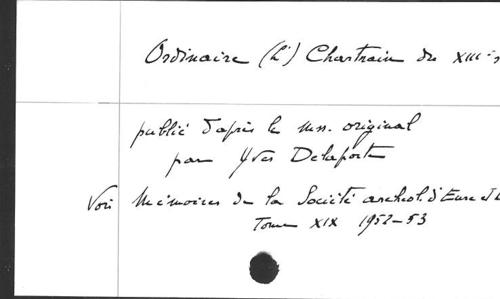 Ordinaire (L') Chartrain du XIIIe s
publié d'après le mss. original
par Yves Delaporte
Voir Mémoires de la Société archéol. d'Eure et L
Tome XIX 1952-53